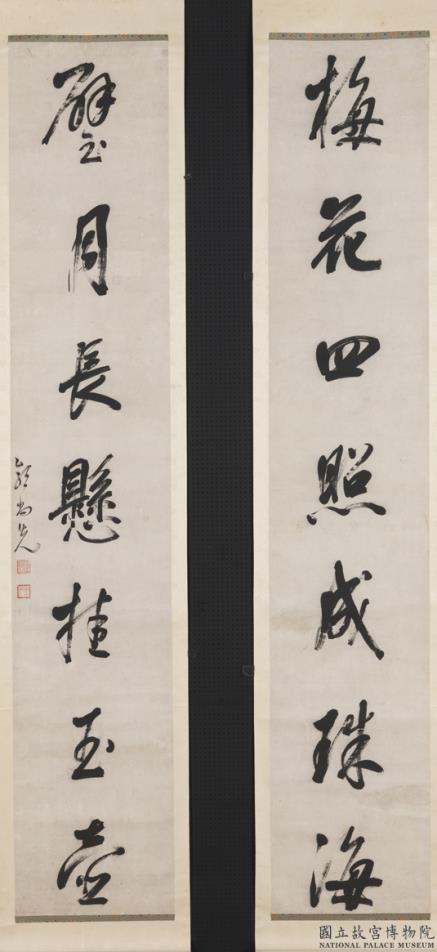 梅花四照成珠海
璧月長懸挂玉壺
郭尚先
國立故宮博物院
NATIONAL PALACE MUSEUM